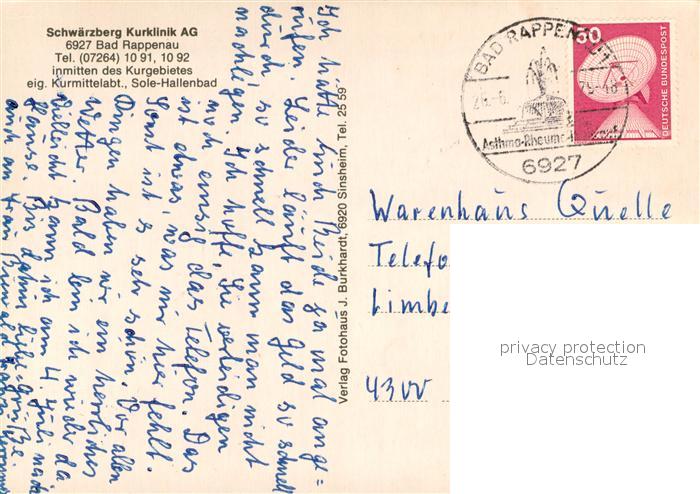 Schwärzberg Kurklinik AG
6927 Bad Rappenau
Tel. (07264) 10 91, 10 92
inmitten des Kurgebietes
eig. Kurmittelabt., Sole-Hallenbad
Ich hatte Euch Beide so mal ange=
rufen. Leider läuft das Geld so schnell
durch, so schnell kann man nicht
nachlegen. Ich hoffe, Sie verteidigen
mich einzig das Telefon. Das
ist etwas, was mir hier fehlt.
Sonst ist es sehr schön. Vor allen
Dingen haben wir ein herrliches
Wetter. Bald bin ich wieder da
Vielleicht kann ich am 4. Juli nach
Hause. Bis dahin liebe Grüße.
auch an Frau
Verlag Fotohaus J. Burkhardt, 6920 Sinsheim, Tel. 25 59
BAD RAPPENAU 1
Asthma-Rheuma-
6927
50
DEUTSCHE BUNDESPOST
Warenhaus Quelle
Telefo
Limbe
4300
privacy protection
Datenschutz